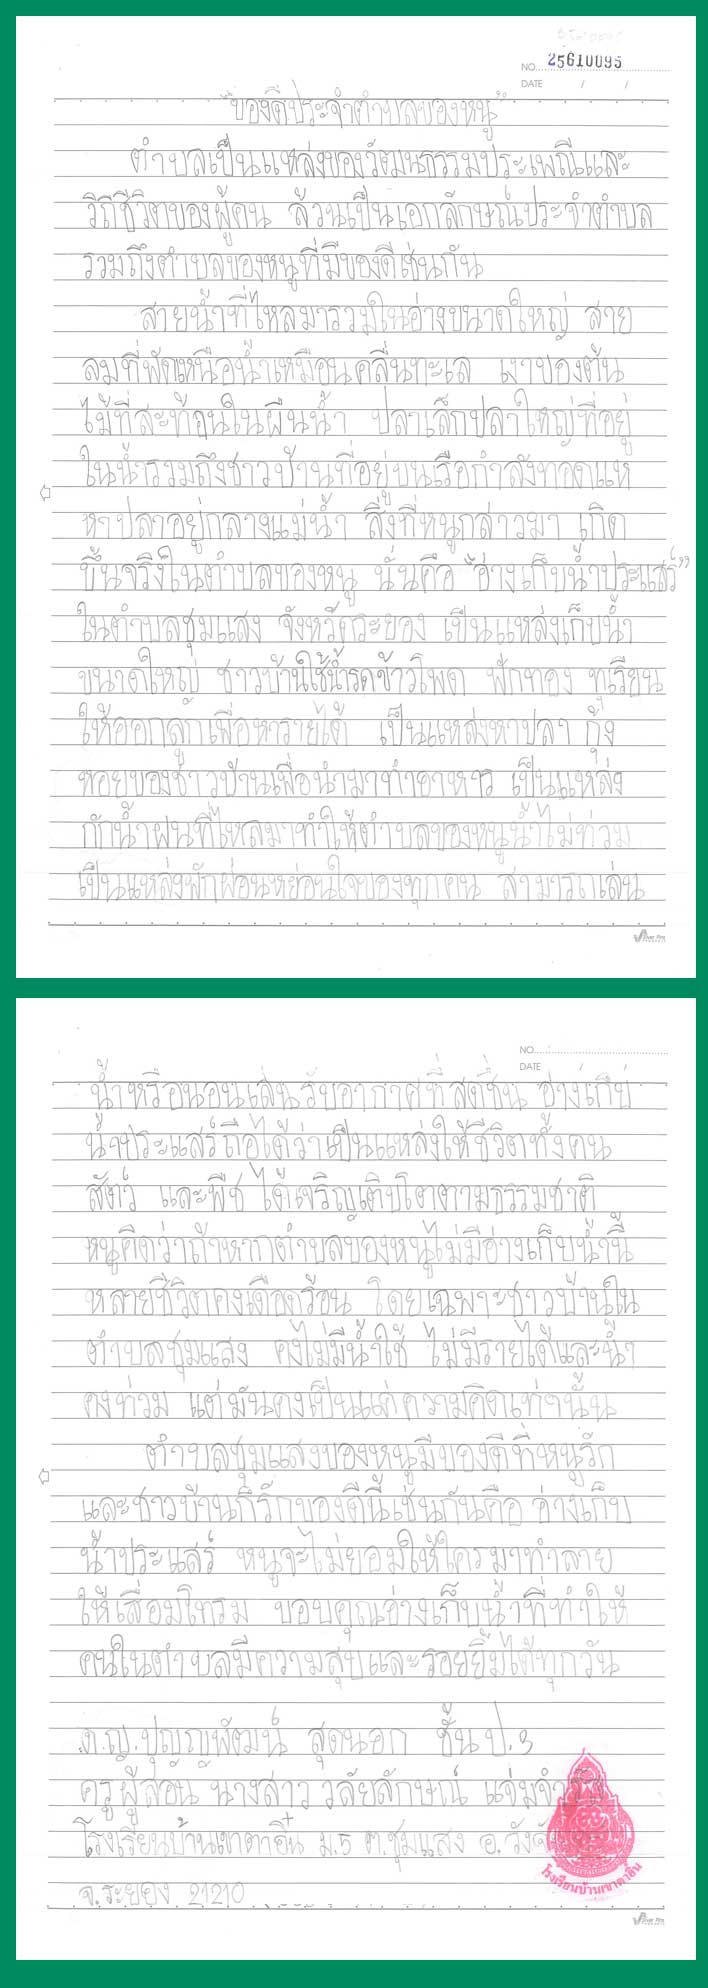 NO. 25610095
DATE / /
"ของดีประจำตำบลของหนู"
ตำบลเป็นแหล่งของวัฒนธรรมประเพณีและ
วิถีชีวิตของผู้คน ล้วนเป็นเอกลักษณ์ประจำตำบล
รวมถึงตำบลของหนูที่มีของดีเช่นกัน
สายน้ำที่ไหลมารวมในอ่างขนาดใหญ่ สาย
ลมที่พัดเหนือน้ำเหมือนคลื่นทะเล เงาของต้น
ไม้ที่สะท้อนในผืนน้ำ ปลาเล็กปลาใหญ่ที่อยู่
ในน้ำรวมถึงชาวบ้านที่อยู่บนเรือกำลังทอดแห
หาปลาอยู่กลางแม่น้ำ สิ่งที่หนูกล่าวมา เกิด
ขึ้นจริงในตำบลของหนู นั่นคือ "อ่างเก็บน้ำประแสร์"
ในตำบลชุมแสง จังหวัดระยอง เป็นแหล่งเก็บน้ำ
ขนาดใหญ่ ชาวบ้านใช้น้ำรดข้าวโพด ฟักทอง ทุเรียน
ให้ออกลูกเพื่อหารายได้ เป็นแหล่งหาปลา กุ้ง
หอยของชาวบ้านเพื่อนำมาทำอาหาร เป็นแหล่ง
กักน้ำฝนที่ไหลมาทำให้ตำบลของหนูน้ำไม่ท่วม
เป็นแหล่งพักผ่อนหย่อนใจของทุกคน สามารถเล่น
NO.
DATE / /
น้ำหรือนอนเล่นรับอากาศที่สดชื่น อ่างเก็บ
น้ำประแสร์ถือได้ว่าเป็นแหล่งให้ชีวิตทั้งคน
สัตว์ และพืช ได้เจริญเติบโตตามธรรมชาติ
หนูคิดว่าถ้าหากตำบลของหนูไม่มีอ่างเก็บน้ำนี้
หลายชีวิตคงเดือดร้อน โดยเฉพาะชาวบ้านใน
ตำบลชุมแสง คงไม่มีน้ำใช้ ไม่มีรายได้และน้ำ
คงท่วม แต่มันคงเป็นแค่ความคิดเท่านั้น
ตำบลชุมแสงของหนูมีของดีที่หนูรัก
และชาวบ้านก็รักของดีนี้เช่นกันคือ อ่างเก็บ
น้ำประแสร์ หนูจะไม่ยอมให้ใครมาทำลาย
ให้เสื่อมโทรม ขอบคุณอ่างเก็บน้ำที่ทำให้
คนในตำบลมีความสุขและรอยยิ้มได้ทุกวัน
ด.ญ.ปุญญพัฒน์ สุดนอก ชั้น ป.3
ครูผู้สอน นางสาว วลัยลักษณ์ แจ่มจำรัส
โรงเรียนบ้านเขาตาอิ๋น ม.5 ต.ชุมแสง อ.วังจันทร์
จ.ระยอง 21210
โรงเรียนบ้านเขาตาอิ๋น